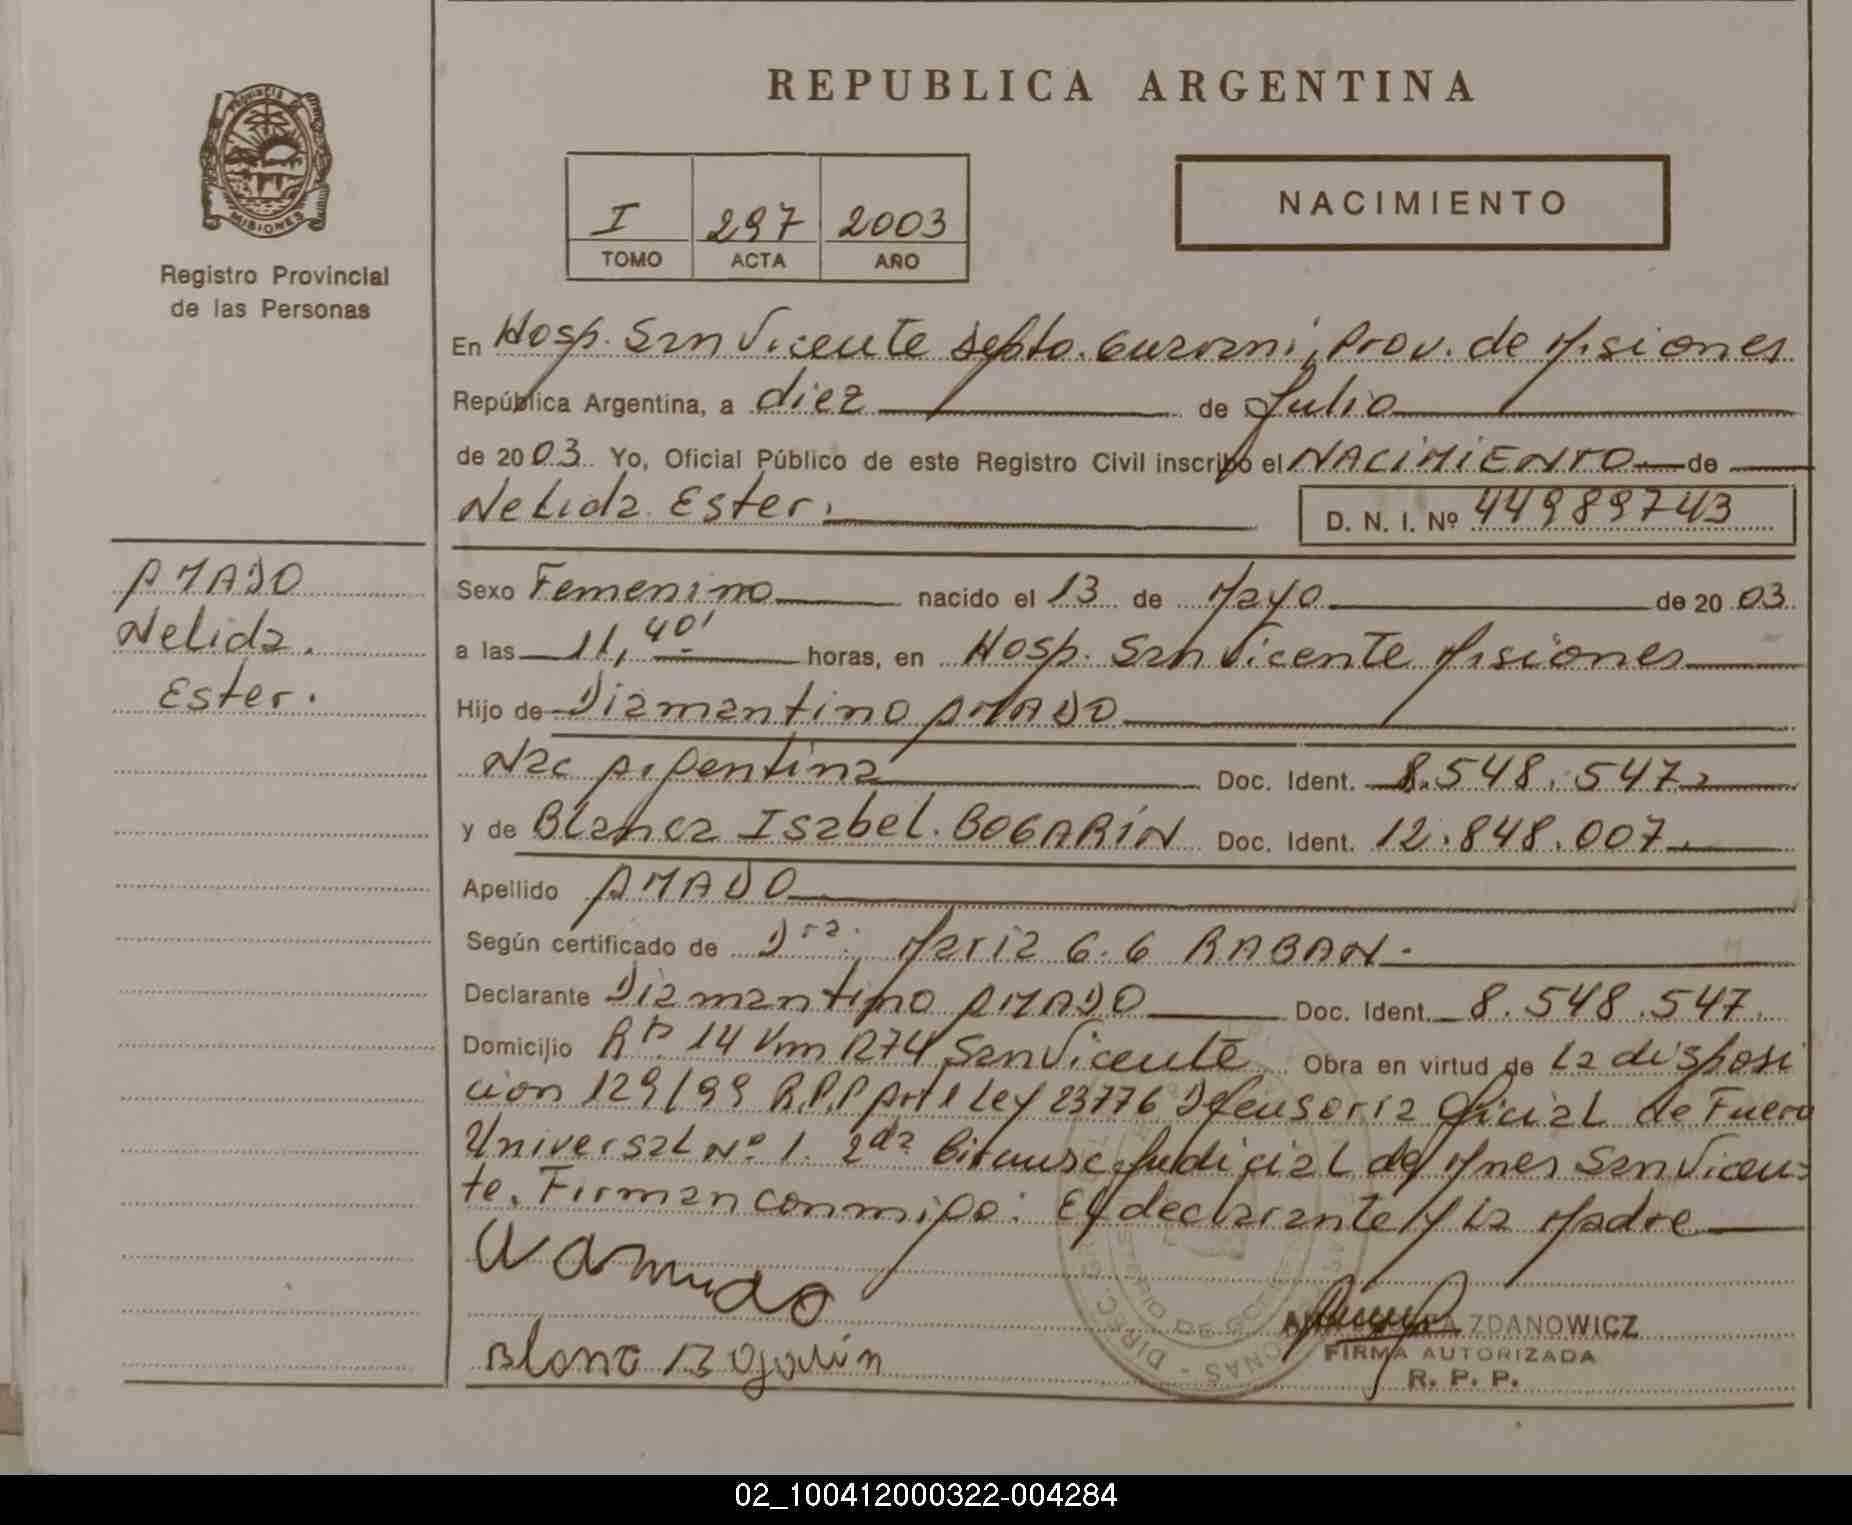 REPUBLICA ARGENTINA
PROVINCIA DE
MISIONES
Registro Provincial
de las Personas
I 297 2003
TOMO ACTA AÑO
NACIMIENTO
En Hosp. San Vicente Depto. Guarani, Prov. de Misiones
República Argentina, a diez de Julio
de 2003 Yo, Oficial Público de este Registro Civil inscribo el NACIMIENTO de
Nelida Ester.
D. N. I. Nº 44989743
AMADO
Nelida.
Ester.
Sexo Femenino nacido el 13 de Mayo de 2003
a las 11,40' horas, en Hosp. San Vicente Misiones
Hijo de Diamantino AMADO
Nac Argentina Doc. Ident. 8.548.547
y de Blanca Isabel. BOGARÍN Doc. Ident. 12.848.007
Apellido AMADO
Según certificado de Dra. Maria G. G RABAN.
Declarante Diamantino AMADO Doc. Ident. 8.548.547.
Domicilio 14 Km 1274 San Vicente Obra en virtud de La disposi
cion 129/99 R.P.P Art 1 Ley 23776 Defensoria Oficial de Fuero
Universal Nº 1. 2da Circunsc Judicial de Mnes San Vicen=
te. Firman conmigo: El declarante y La Madre
Blanca Bogarín
ZDANOWICZ
FIRMA AUTORIZADA
R. P. P.
02_100412000322-004284